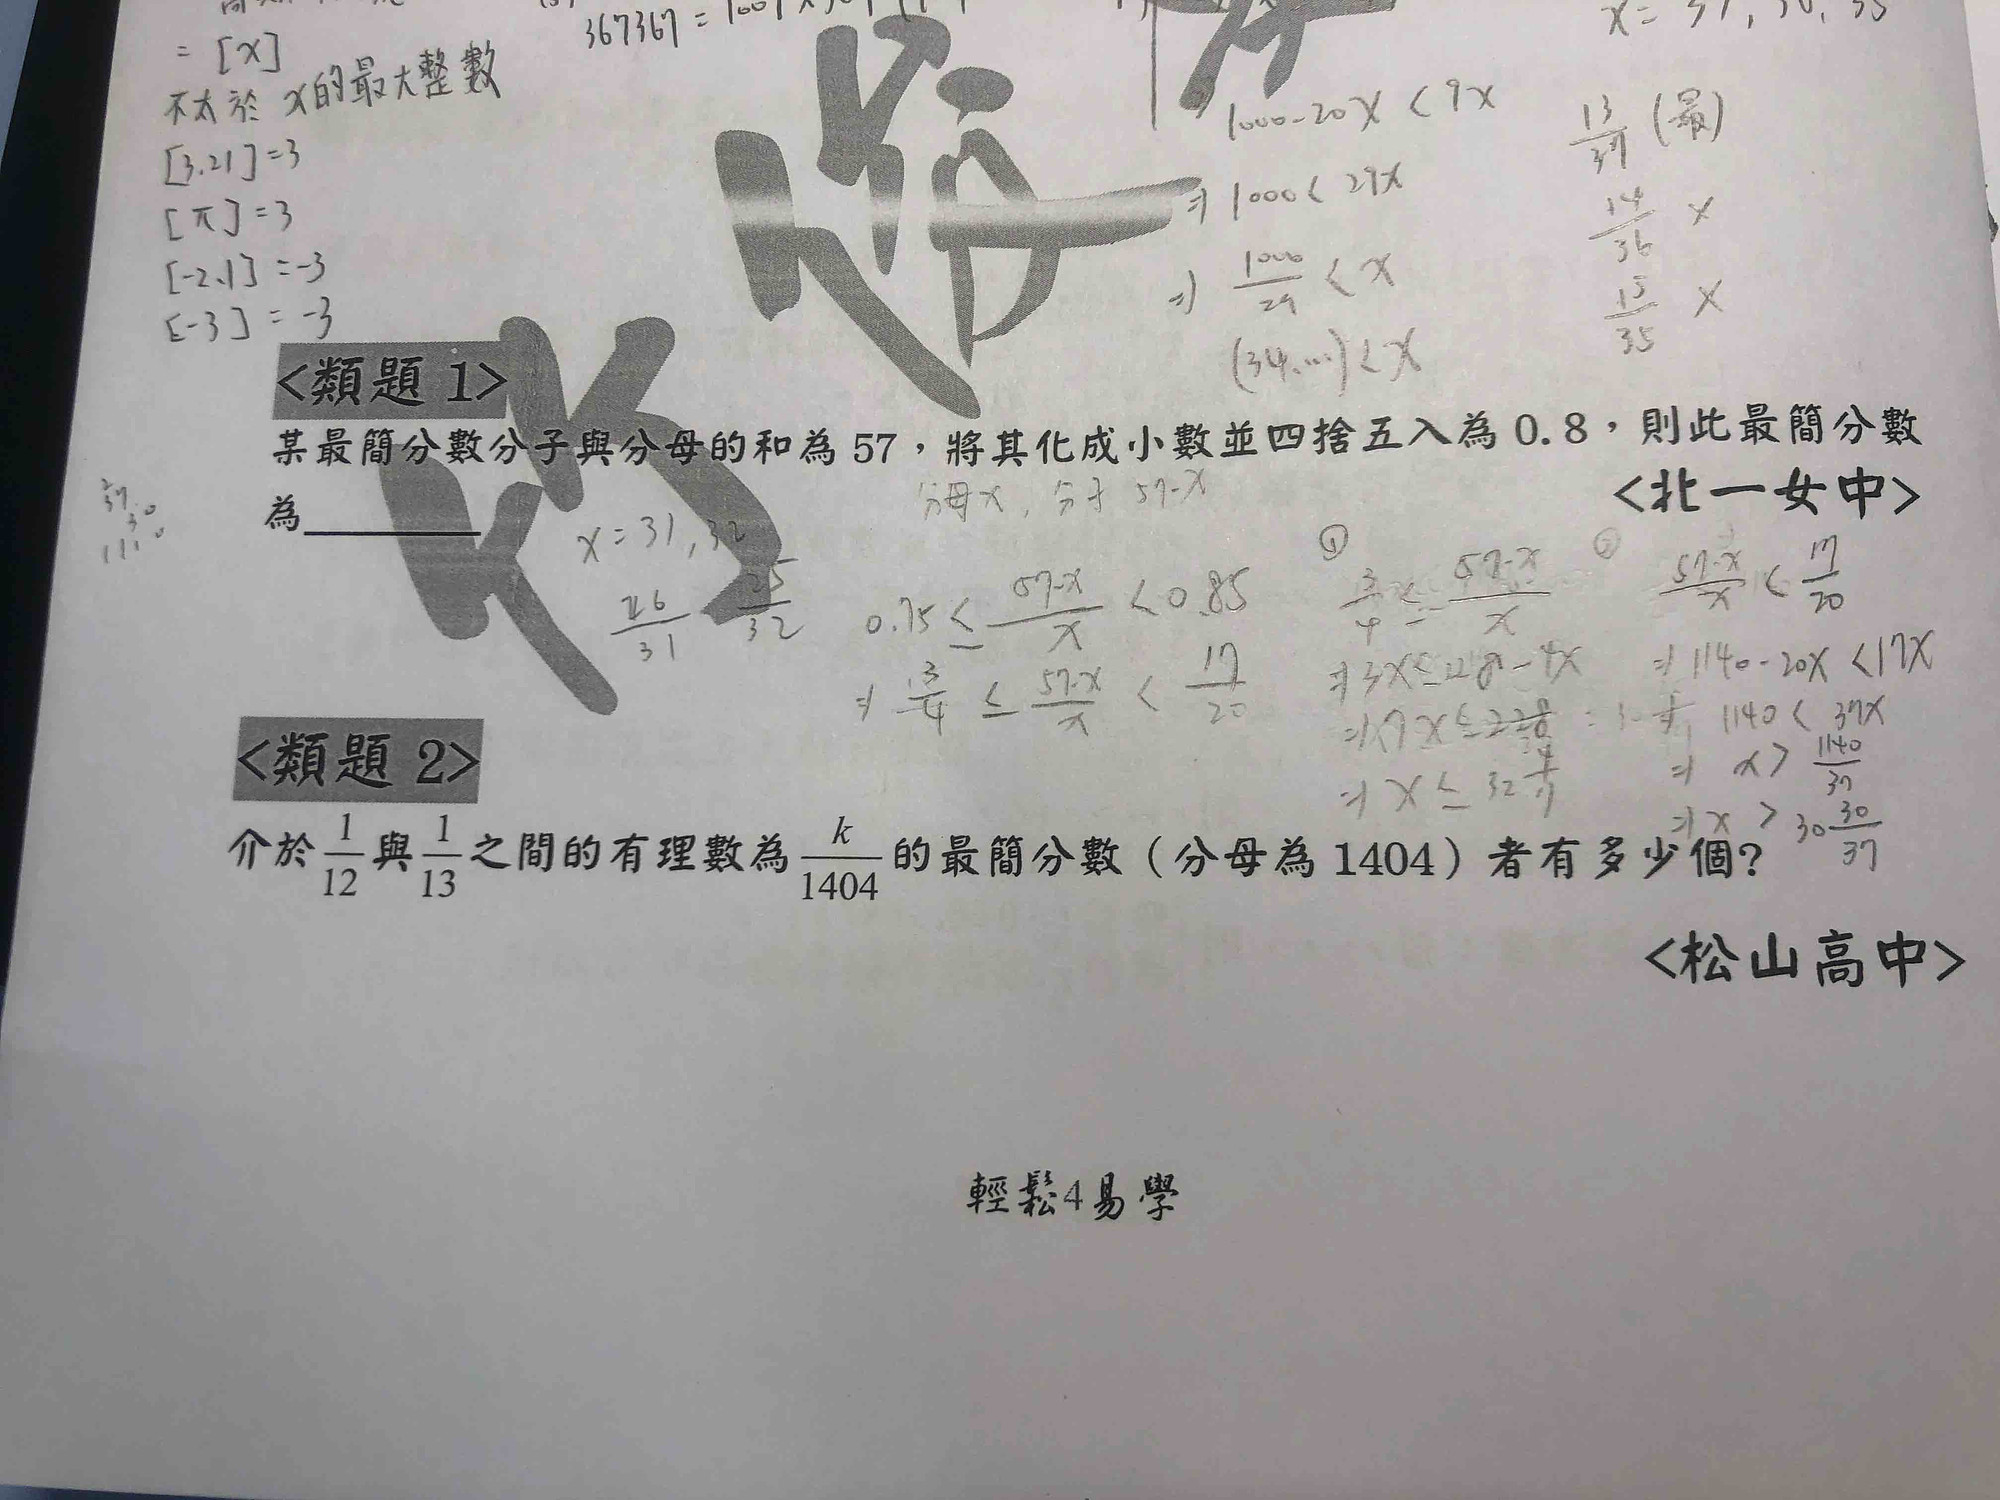 = [x]
不大於 x的最大整數
[3.21]=3
[π]=3
[-2.1]=-3
[-3]=-3
1000-20x < 9x
⇒ 1000 < 29x
⇒ 1000/29 < x
(34.…) < x
13/37 (最)
14/36 x
15/35 x
<類題 1>
某最簡分數分子與分母的和為 57，將其化成小數並四捨五入為 0.8，則此最簡分數
為
<北一女中>
分母x, 分子 57-x
x=31, 32
26/31 25/32
0.75 ≤ (57-x)/x < 0.85
⇒ 3/4 ≤ (57-x)/x < 17/20
① 3/4 ≤ (57-x)/x
⇒ x ≤ 32 4/7
② (57-x)/x < 17/20
⇒ 1140-20x < 17x
1140 < 37x
⇒ x > 1140/37
⇒ x > 30 30/37
<類題 2>
介於 1/12 與 1/13 之間的有理數為 k/1404 的最簡分數（分母為 1404）者有多少個?
<松山高中>
輕鬆4易學